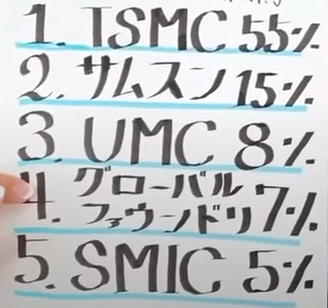 1. TSMC 55%
2. サムスン 15%
3. UMC 8%
4. グローバル
ファウンドリ 7%
5. SMIC 5%